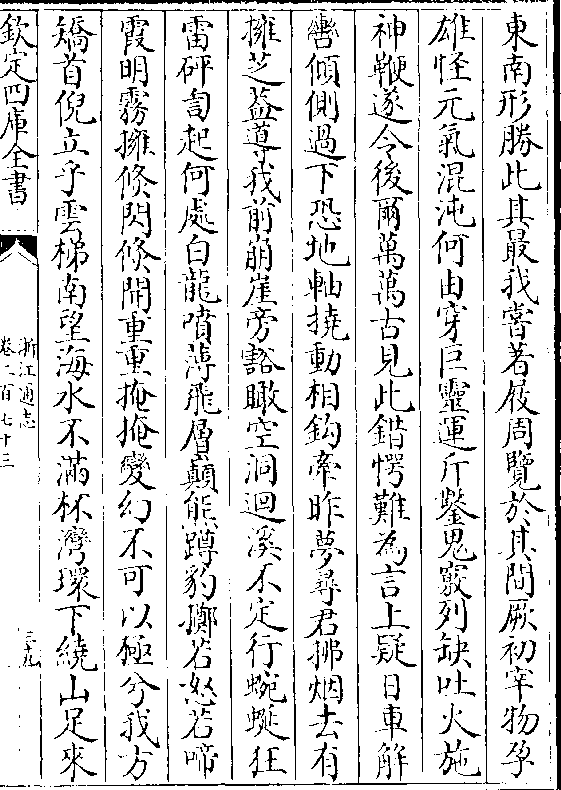 東南形勝此其最我嘗著屐周覽於其間厥初宰物孕
雄怪元氣混沌何由穿巨靈運斤鑿鬼竅列缺吐火施
神鞭遂令後爾萬萬古見此錯愕難為言上疑日車解
轡傾側過下恐地軸撓動相鈎牽昨夢尋君拂烟去有
擁芝葢導我前崩崖旁豁瞰空洞迴溪不定行蜿蜒狂
雷砰訇起何處白龍噴薄飛層巔熊蹲豹擲若怒若啼
霞明霧擁倐閃倐開重重掩掩變幻不可以極兮我方
矯首倪立乎雲梯南望海水不滿杯灣環下繞山足來
欽定四庫全書
浙江通志
卷二百七十三
三十九